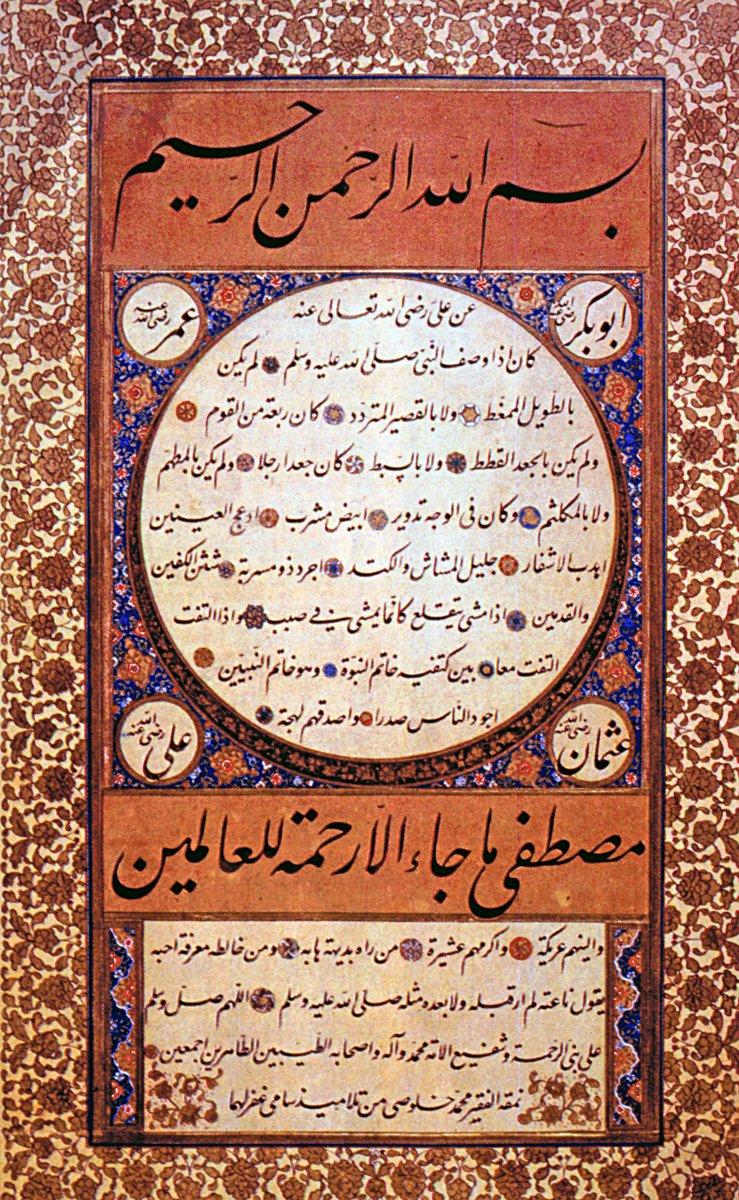 بسم الله الرحمن الرحيم
ابوبكر رضى الله عنه
عمر رضى الله عنه
عن على رضى الله تعالى عنه
كان اذا وصف النبى صلى الله عليه وسلم لم يكن
بالطويل الممغط ولا بالقصير المتردد كان ربعة من القوم
ولم يكن بالجعد القطط ولا بالسبط كان جعدا رجلا ولم يكن بالمطهم
ولا بالمكلثم وكان فى الوجه تدوير ابيض مشرب ادعج العينين
اهدب الاشفار جليل المشاش والكتد اجرد ذو مسربة شثن الكفين
والقدمين اذا مشى يتقلع كانما يمشى فى صبب واذا التفت
التفت معا بين كتفيه خاتم النبوة وهو خاتم النبيين
اجود الناس صدرا واصدقهم لهجة
عثمان رضى الله عنه
على رضى الله عنه
مصطفى ما جاء الا رحمة للعالمين
والينهم عريكة واكرمهم عشيرة من راه بديهة هابه ومن خالطه معرفة احبه
يقول ناعته لم ار قبله ولا بعده مثله صلى الله عليه وسلم اللهم صل وسلم
على نبى الرحمة وشفيع الامة محمد وآله واصحابه الطيبين الطاهرين اجمعين
نمقه الفقير محمد خلوصى من تلاميذ سامى غفر لهما